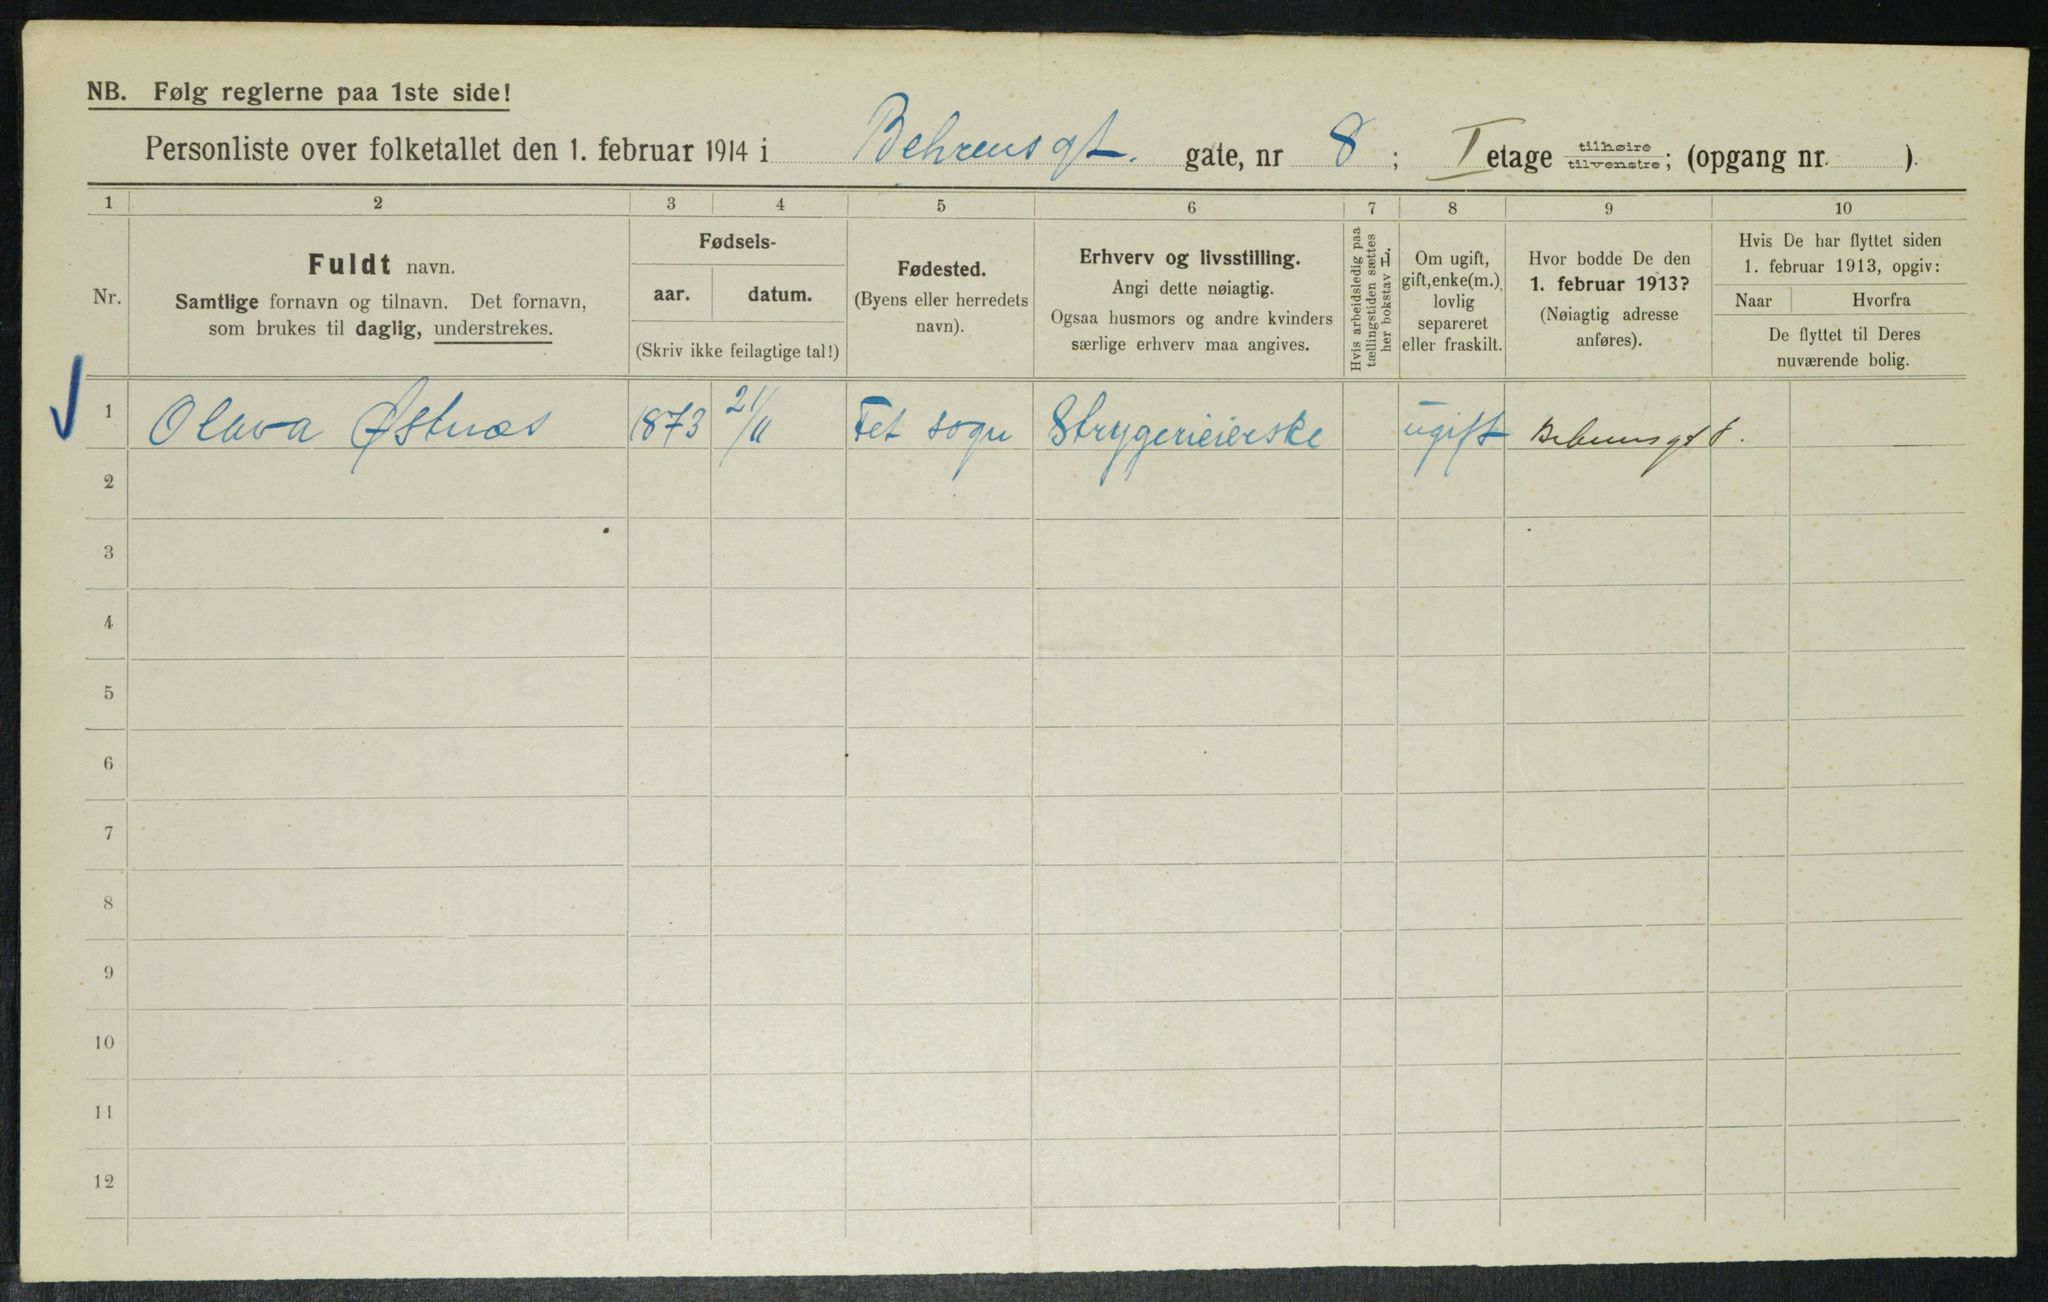 NB. Følg reglerne paa 1ste side!
Personliste over folketallet den 1. februar 1914 i Behrensgt. gate, nr 8 ; I etage tilhøire tilvenstre; (opgang nr. ).
1 2 3 4 5 6 7 8 9 10
Nr.
Fuldt navn.
Samtlige fornavn og tilnavn. Det fornavn,
som brukes til daglig, understrekes.
Fødsels-
aar. datum.
(Skriv ikke feilagtige tal!)
Fødested.
(Byens eller herredets
navn).
Erhverv og livsstilling.
Angi dette nøiagtig.
Ogsaa husmors og andre kvinders
særlige erhverv maa angives.
Hvis arbeidsledig paa
tællingstiden sættes
her bokstav L.
Om ugift,
gift, enke(m.),
lovlig
separeret
eller fraskilt.
Hvor bodde De den
1. februar 1913?
(Nøiagtig adresse
anføres).
Hvis De har flyttet siden
1. februar 1913, opgiv:
Naar Hvorfra
De flyttet til Deres
nuværende bolig.
1 Olava Østnæs 1873 21/11 Fet sogn Strygerieierske ugift Behrensgt 8.
2
3
4
5
6
7
8
9
10
11
12